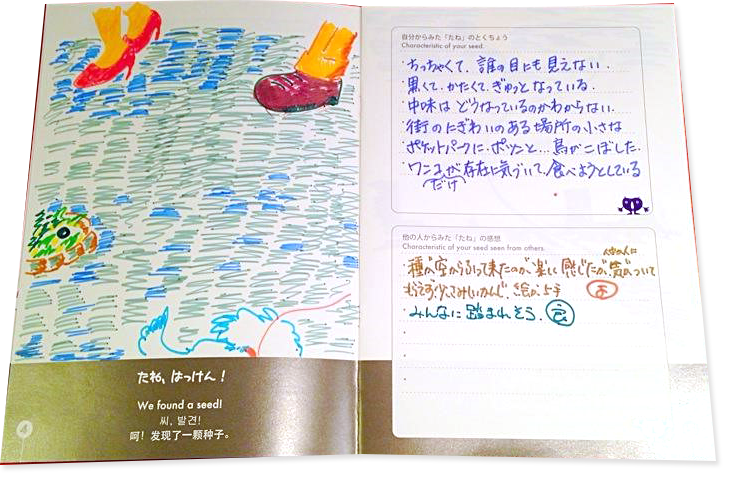 たね、はっけん!
We found a seed!
씨, 발견!
呵！发现了一颗种子。
4
自分からみた「たね」のとくちょう
Characteristic of your seed.
・ちっちゃくて、誰の目にも見えない.
・黒くて、かたくて、ぎゅっとなっている.
・中味はどうなっているのかわからない.
・街のにぎわいのある場所の小さな
ポケットパークに、ポツンと… 鳥がこぼした.
・ワンコだけが存在に気づいて、食べようとしている
他の人からみた「たね」の感想
Characteristic of your seed seen from others.
・種が空からふって来たのが、楽しく感じたが、人々に気がついて
もらえず少しさみしいかんじ、絵が上手
・みんなに踏まれそう.